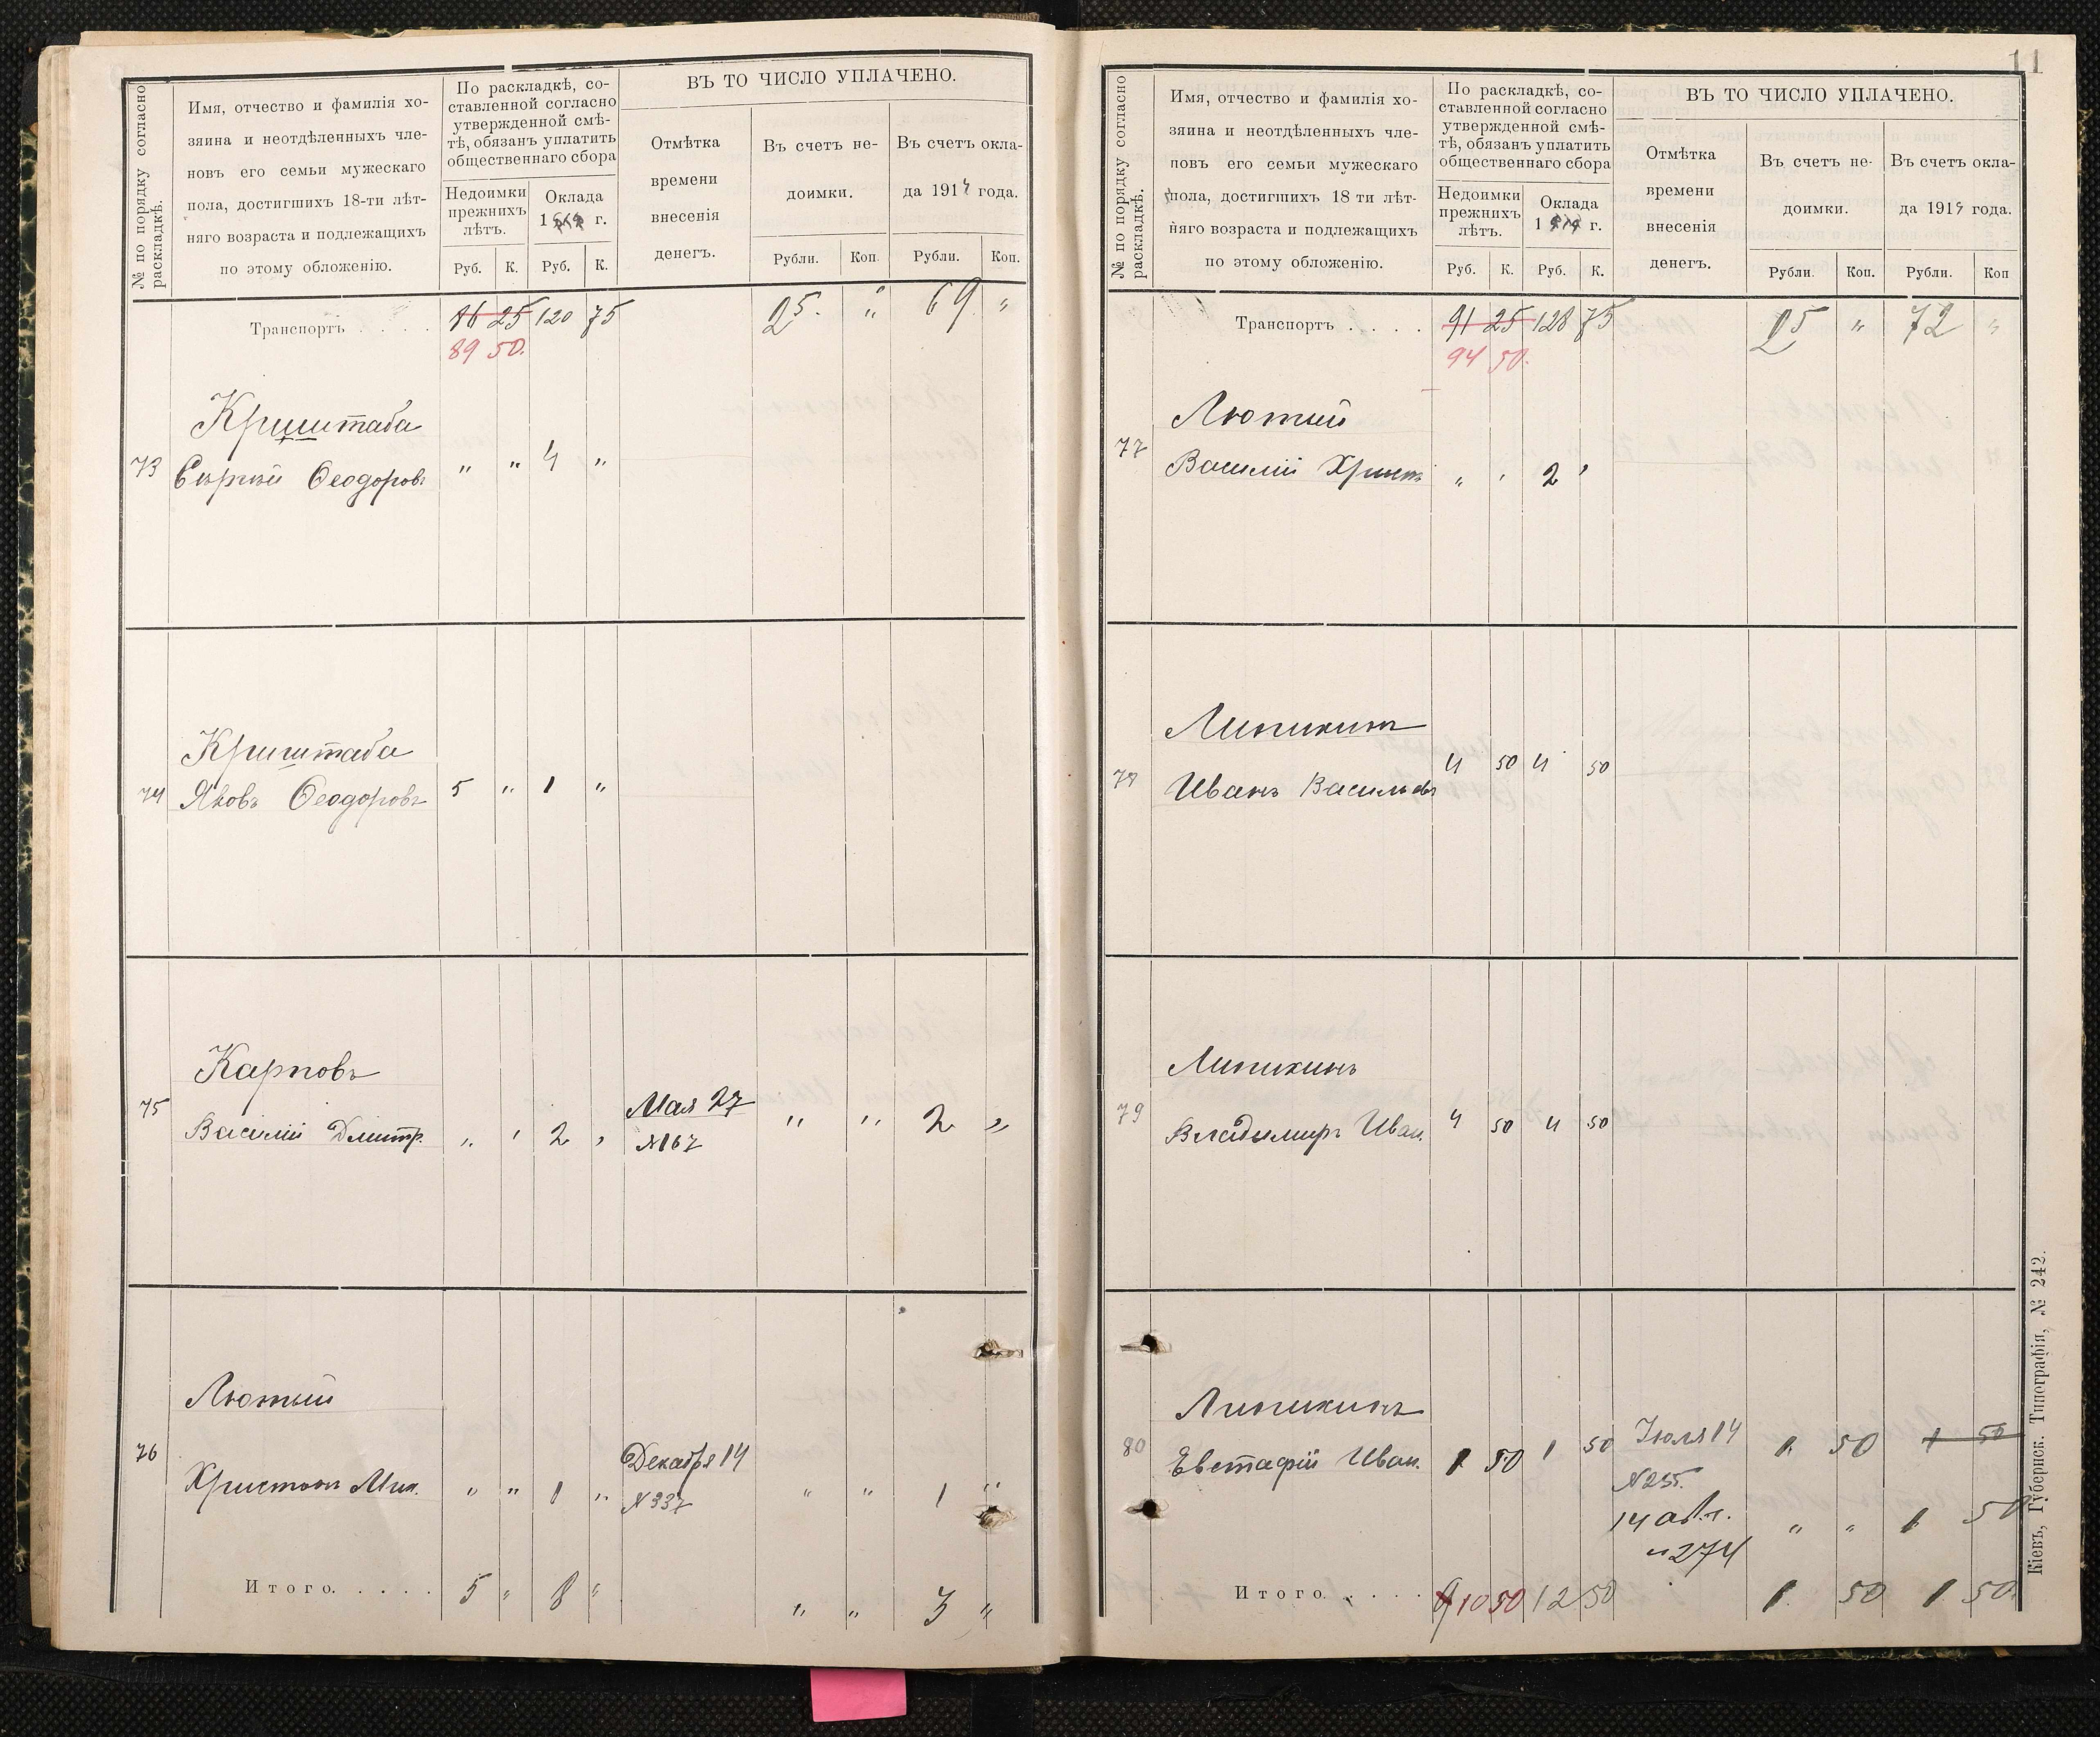 № по порядку согласно
раскладкѣ.
Имя, отчество и фамилія хо-
зяина и неотдѣленныхъ чле-
новъ его семьи мужескаго
пола, достигшихъ 18-ти лѣт-
няго возраста и подлежащихъ
по этому обложенію.
По раскладкѣ, со-
ставленной согласно
утвержденной смѣ-
тѣ, обязанъ уплатить
общественнаго сбора
Недоимки
прежнихъ
лѣтъ.
Оклада
г.
Руб. К. Руб. К.
ВЪ ТО ЧИСЛО УПЛАЧЕНО.
Отмѣтка
времени
внесенія
денегъ.
Въ счетъ не-
доимки.
Въ счетъ окла-
да 1914 года.
Рубли. Коп. Рубли. Коп.
Транспортъ . . . . 86 25 120 75 25. " 69 "
89 50.
Криштаба
73 Сергѣй Ѳеодоровъ " " 4 "
Криштаба
74 Яковъ Ѳеодоровъ 5 " 1 "
Карповъ
75 Василій Дмитр. " " 2 " Мая 27 " " 2 "
№167
Лютый
76 Христіанъ Мих. " " 1 " Декабря 14 " " 1 "
№337
Итого. . . . . 5 " 8 " " " 3 "
11
№ по порядку согласно
раскладкѣ.
Имя, отчество и фамилія хо-
зяина и неотдѣленныхъ чле-
новъ его семьи мужескаго
пола, достигшихъ 18 ти лѣт-
няго возраста и подлежащихъ
по этому обложенію.
По раскладкѣ, со-
ставленной согласно
утвержденной смѣ-
тѣ, обязанъ уплатить
общественнаго сбора
Недоимки
прежнихъ
лѣтъ.
Оклада
г.
Руб. К. Руб. К.
ВЪ ТО ЧИСЛО УПЛАЧЕНО.
Отмѣтка
времени
внесенія
денегъ.
Въ счетъ не-
доимки.
Въ счетъ окла-
да 1914 года.
Рубли. Коп. Рубли. Коп
Транспортъ . . . . 91 25 128 75 25 " 72 "
94 50.
Лютый
77 Василій Христ. " " 2 "
Липикинъ
78 Иванъ Васильевъ 4 50 4 50
Липикинъ
79 Владимиръ Иван. 4 50 4 50
Липикинъ
80 Евстафій Иван. 1 50 1 50 Іюля 14 1 50 1 50
№255.
14 авг. " " 1 50
№274
Итого. . . . . 10 50 12 50 1 50 1 50
Кіевъ, Губернск. Типографія, № 242.